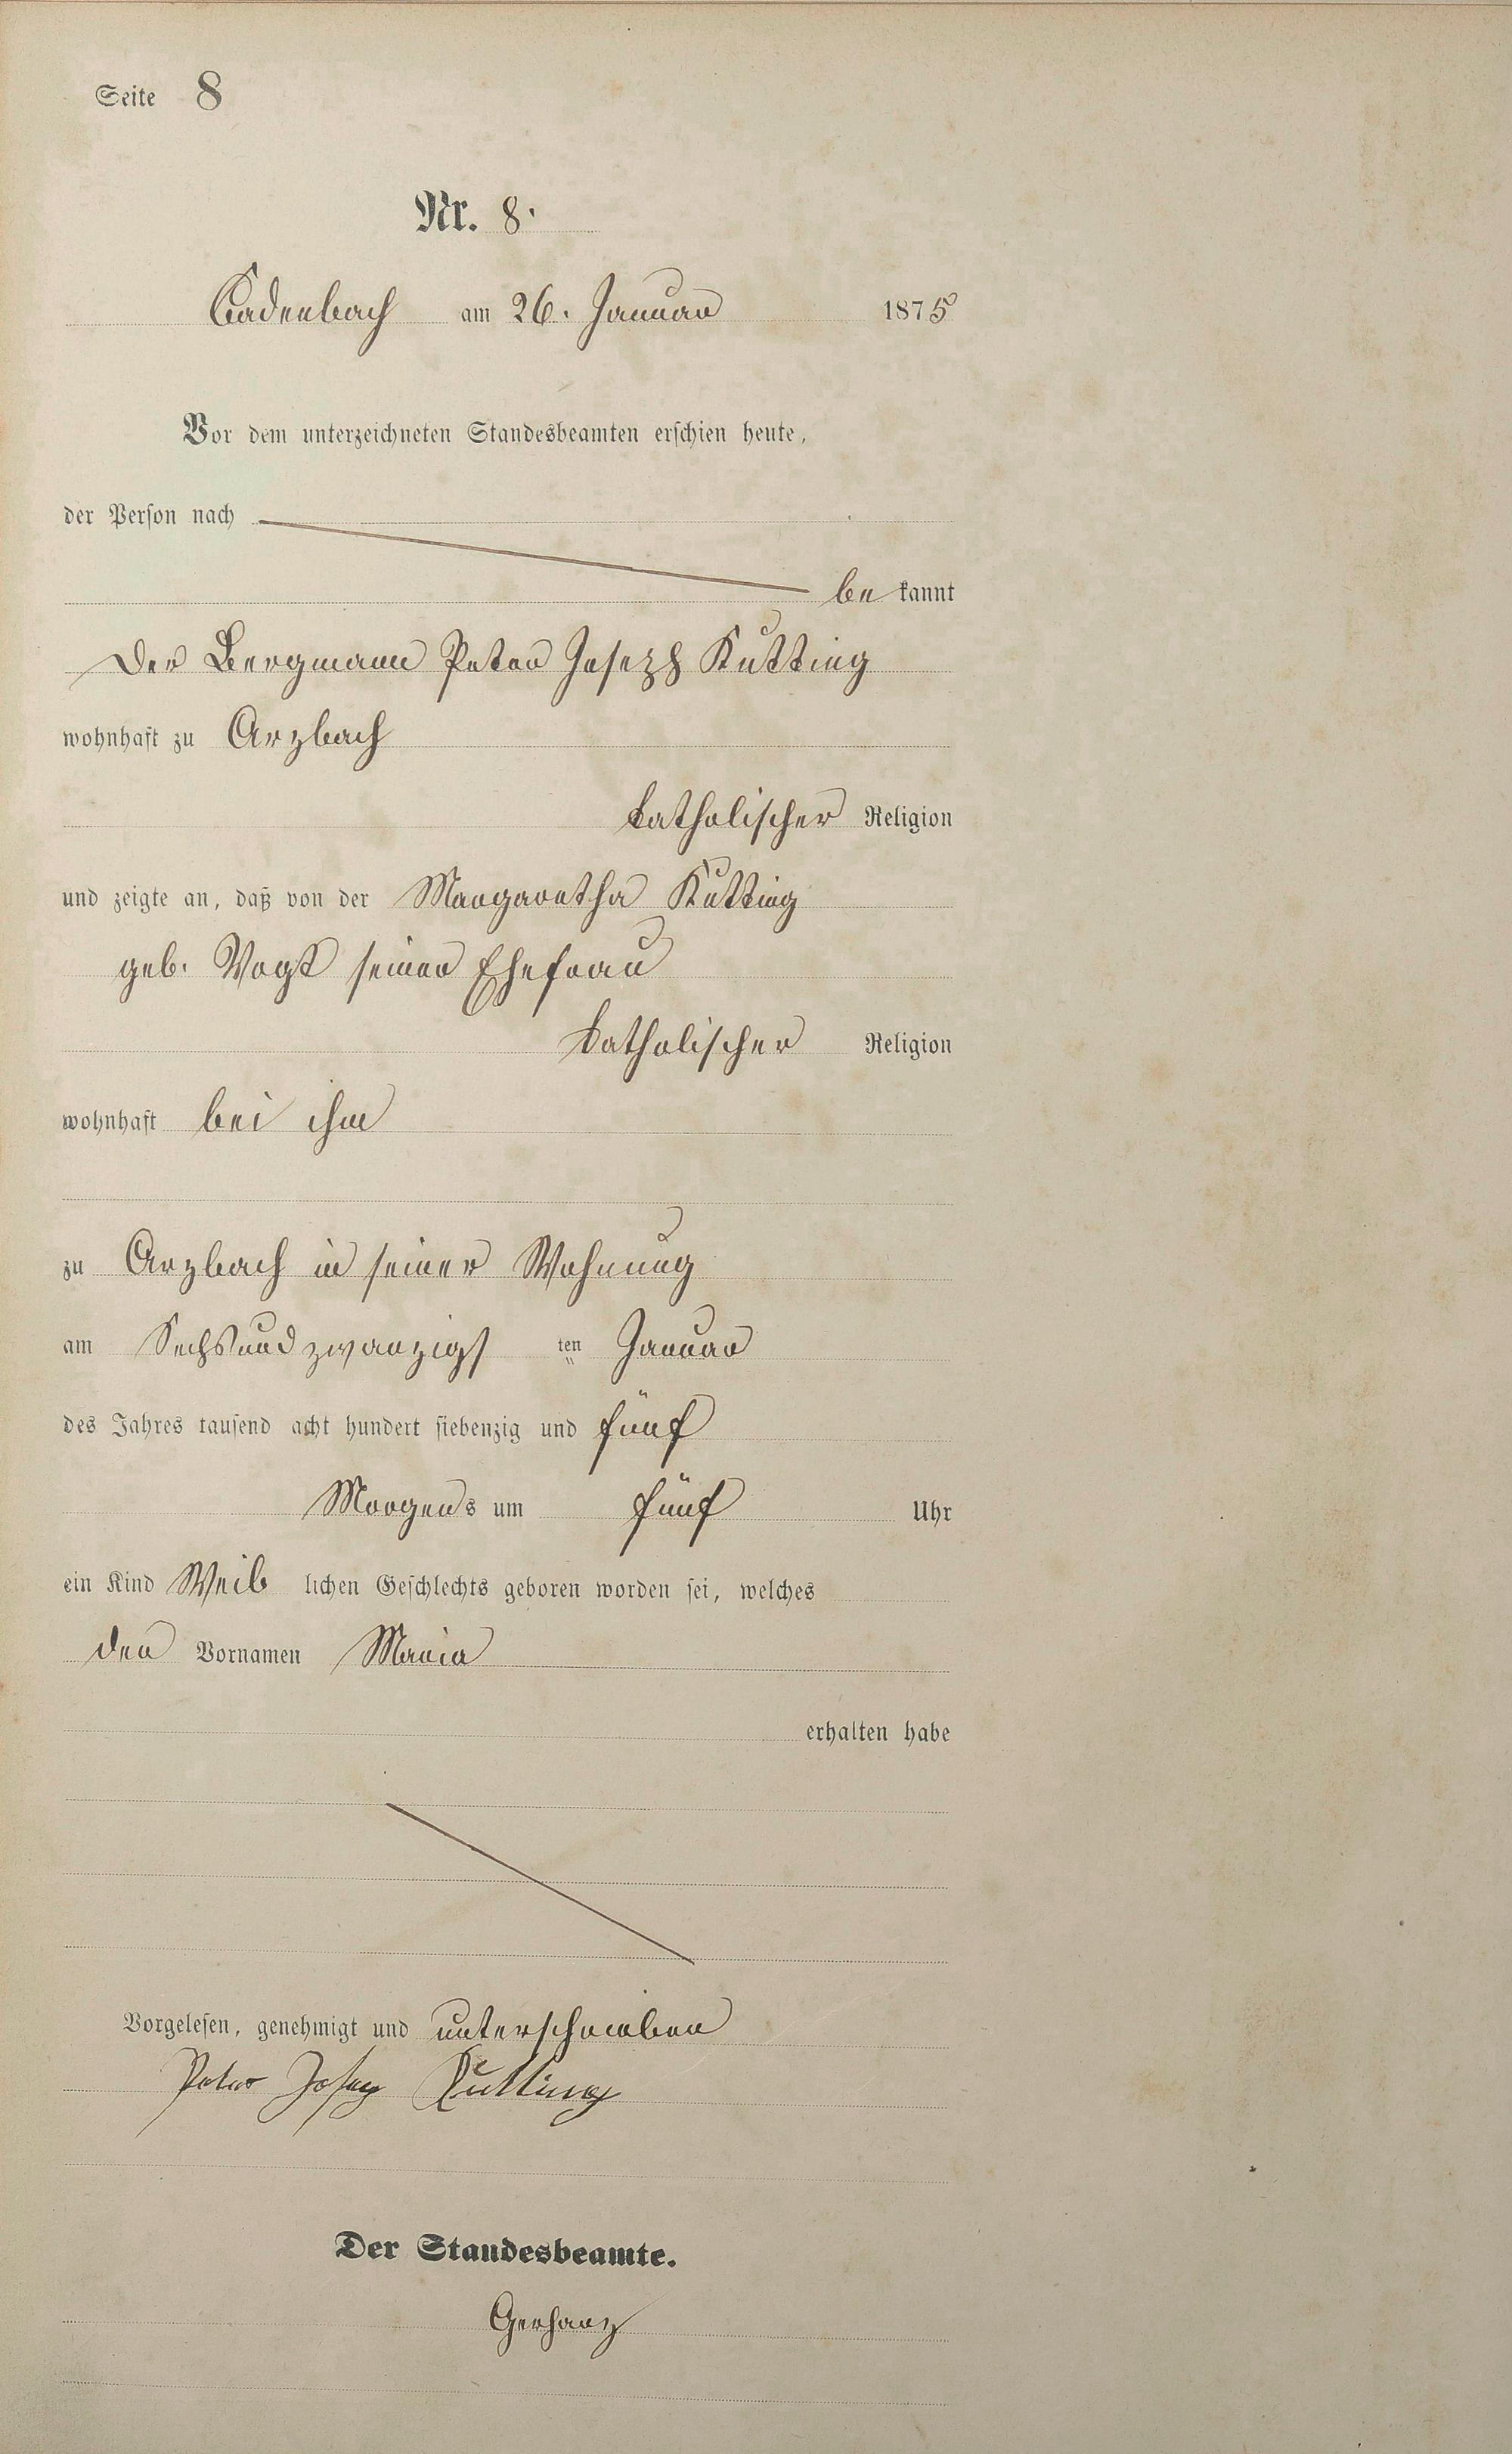 Seite 8
Nr. 8.
Cadenbach am 26. Januar 1875
Vor dem unterzeichneten Standesbeamten erschien heute,
der Person nach
be kannt
Der Bergmann Peter Joseph Kutting
wohnhaft zu Arzbach
katholischer Religion
und zeigte an, daß von der Margaretha Kutting
geb. Vogt seiner Ehefrau
katholischer Religion
wohnhaft bei ihm
zu Arzbach in seiner Wohnung
am Sechsundzwanzigs ten Januar
des Jahres tausend acht hundert siebenzig und fünf
Morgens um fünf Uhr
ein Kind Weib lichen Geschlechts geboren worden sei, welches
den Vornamen Maria
erhalten habe
Vorgelesen, genehmigt und unterschrieben
Peter Josep Kutting
Der Standesbeamte.
Gerharz